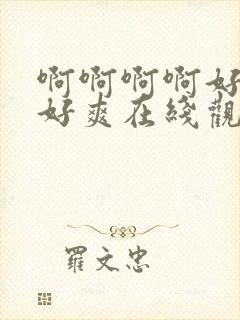 啊啊啊啊好
好爽在綫觀
羅文忠